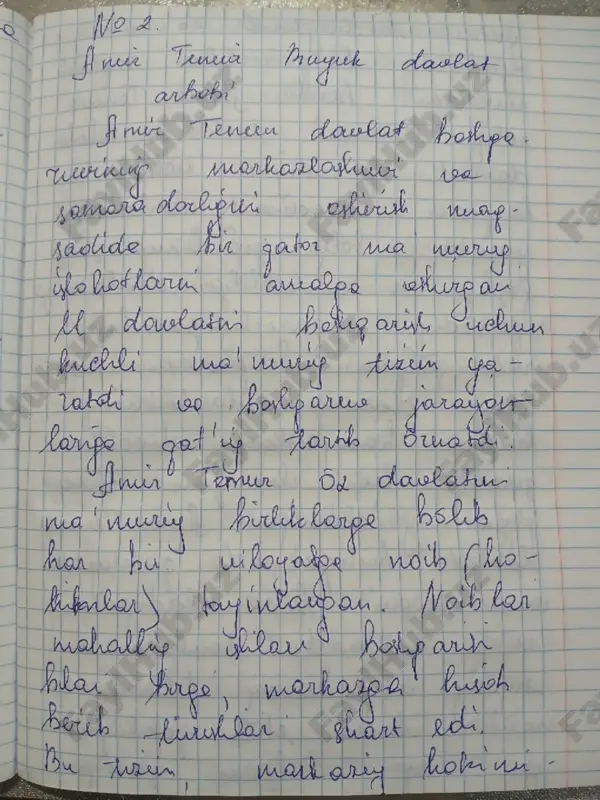 № 2.
Amir Temur Buyuk davlat
arbobi
Amir Temur davlat boshqa-
ruvining markazlashuvi va
samaradorligini oshirish maq-
sadida bir qator ma'muriy
islohotlarni amalga oshirgan
U davlatni boshqarish uchun
kuchli ma'muriy tizim ya-
ratdi va boshqaruv jarayon-
lariga qat'iy tartib ornatdi.
Amir Temur öz davlatini
ma'muriy birliklarga bölib
har bir viloyatga noib (ho-
kimlar) tayinlangan. Noiblar
mahalliy ishlarni boshqarish
bilan birga, markazga hisob
berib turishlari shart edi.
Bu tizim, markaziy hokimi-
FayllHub.uz